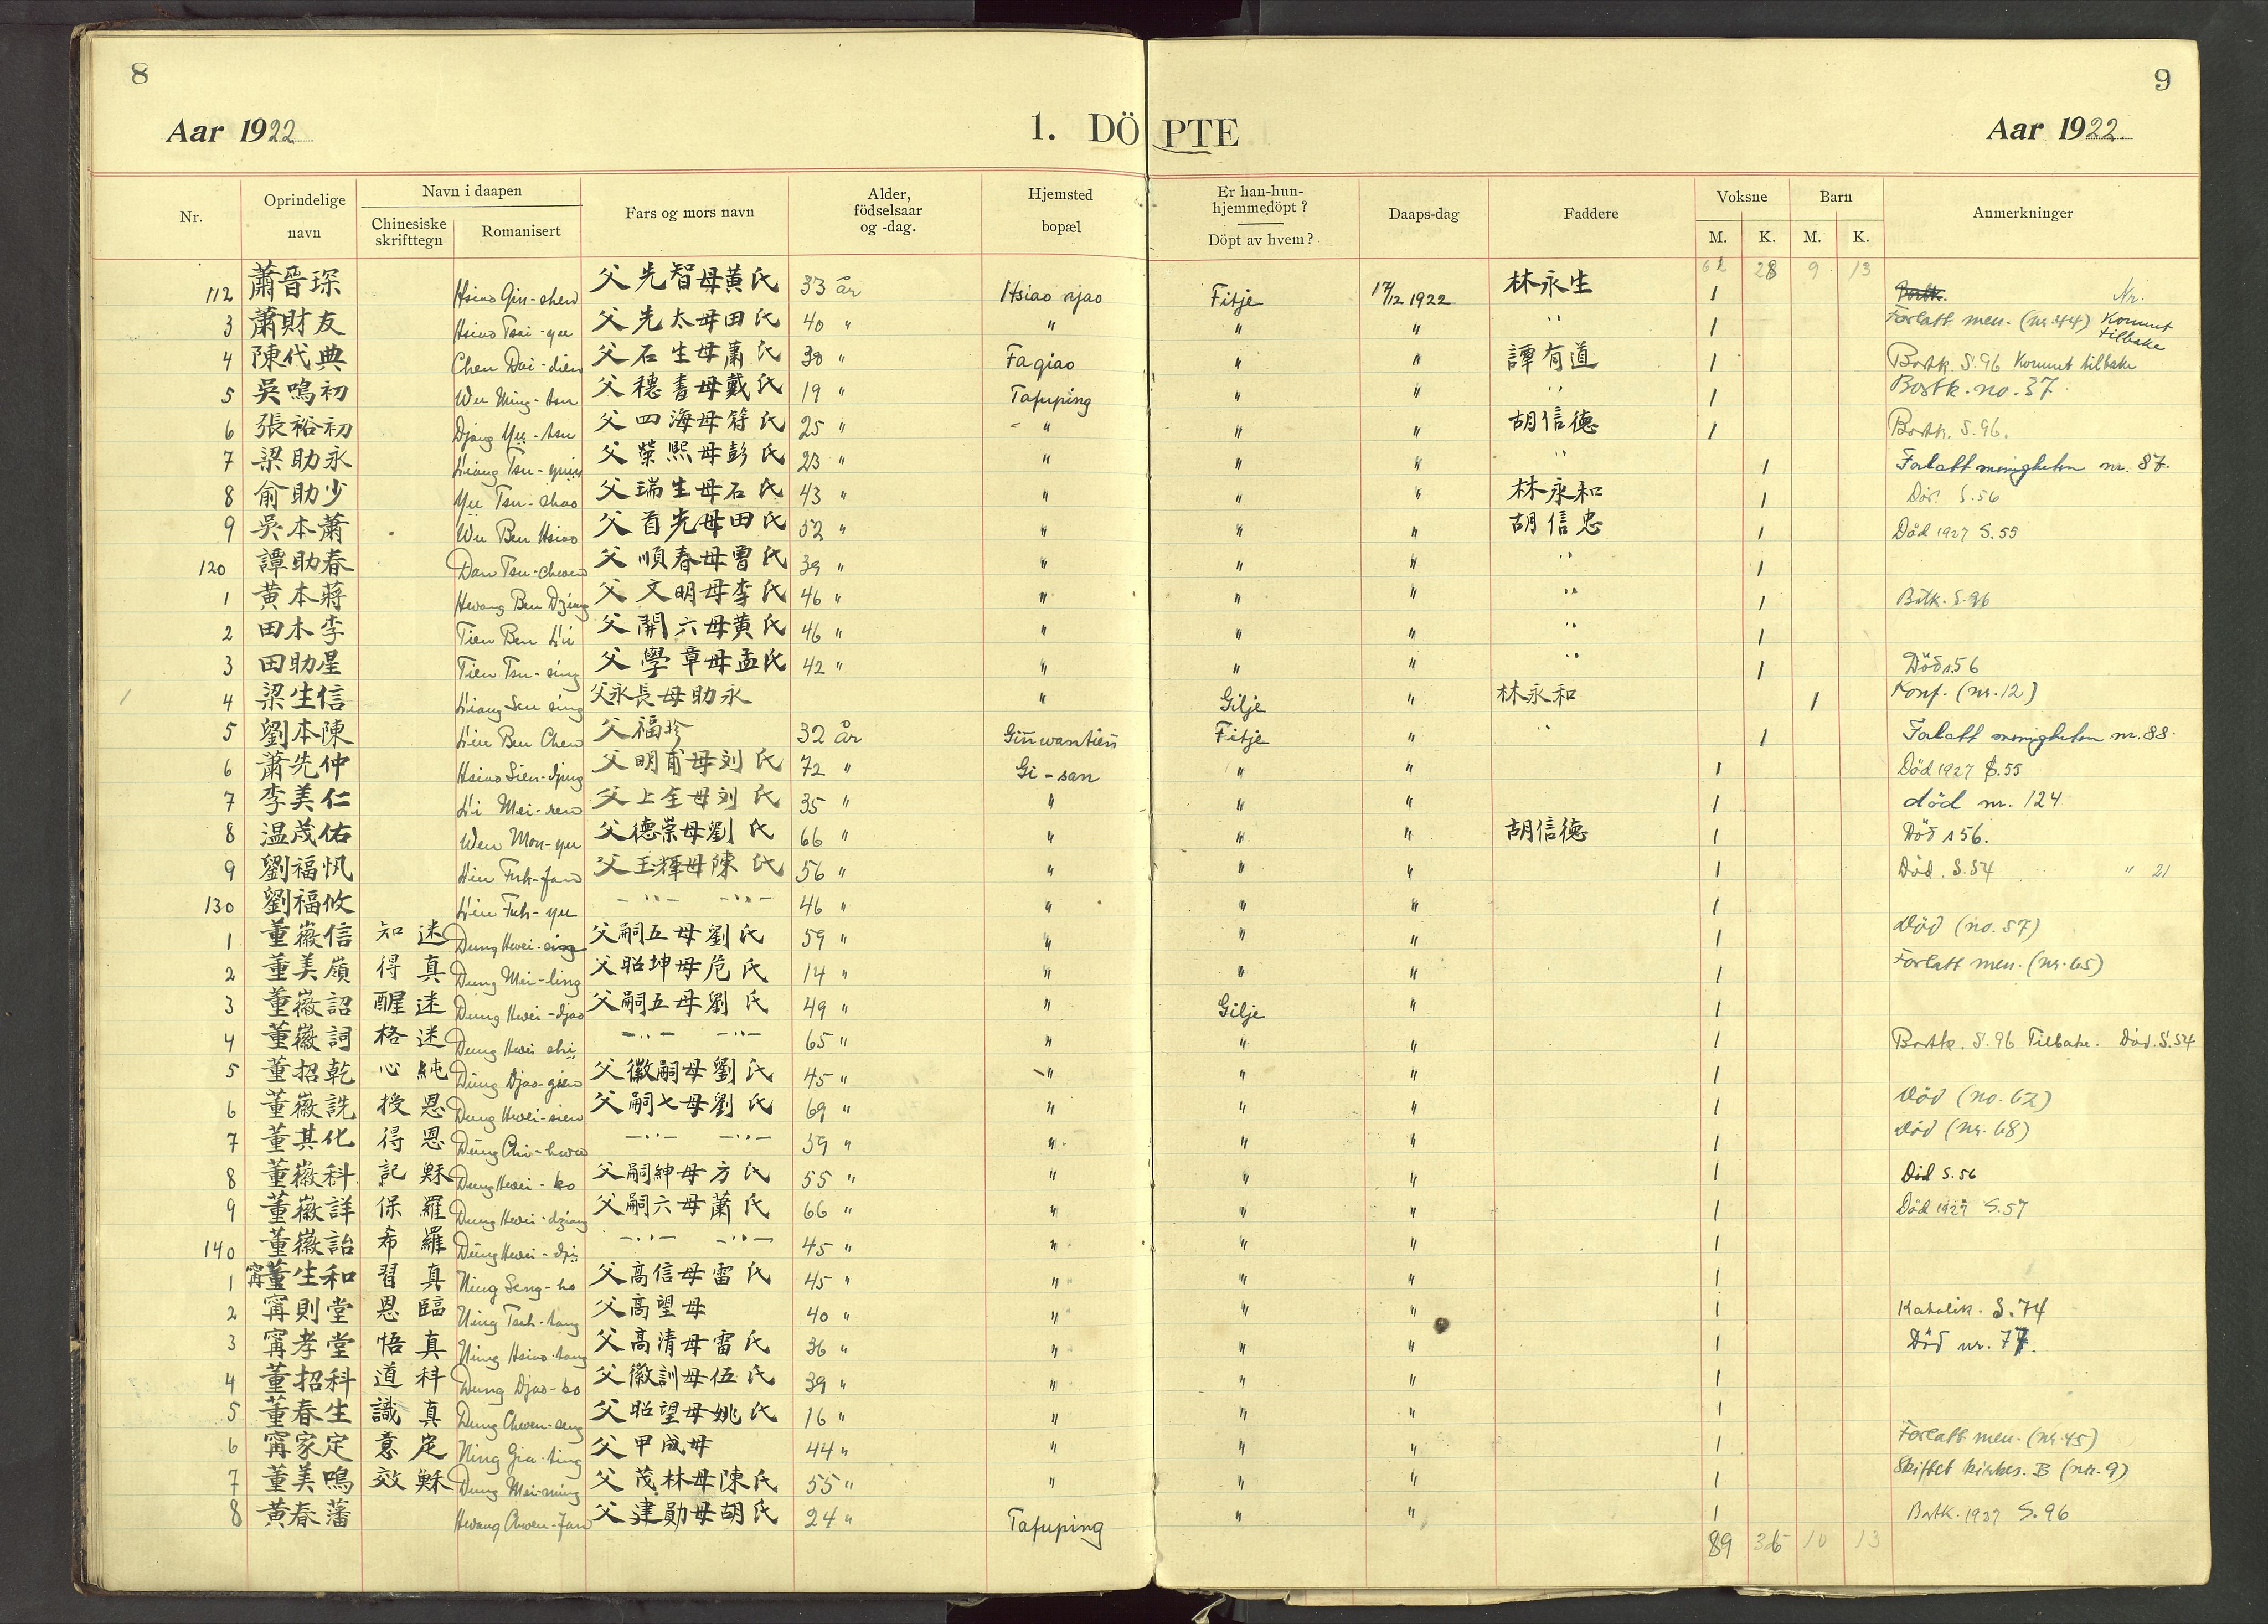 8
9
Aar 1922
1. DÖPTE
Aar 1922
Nr.
Oprindelige navn
Navn i daapen
Chinesiske skrifttegn
Romanisert
Fars og mors navn
Alder, födselsaar og -dag.
Hjemsted bopæl
Er han-hun-hjemmedöpt?
Döpt av hvem?
Daaps-dag
Faddere
Voksne
Barn
M. K. M. K.
Anmerkninger
28 9 13
112 蕭晉琛 父先智母黃氏 33 år Hsiao njao Fitje 17/12 1922 林永生 1 Nr.
3 蕭財友 Hsiao Tsai-yu 父先太母田氏 40 " " " " " 1 Forlatt men. (nr. 44) Kommet tilbake
4 陳代典 Chen Dai-dien 父石生母蕭氏 38 " Faqiao " " 譚有道 1 Bortk. S. 96 Kommet tilbake
5 吳鳴初 Wu Ming-tsu 父穗書母戴氏 19 " Tafuping " " " 1 Bortk. no. 37
6 張裕初 Djang Yü-tsu 父四海母符氏 25 " " " " 胡信德 1 Bortk. S. 96.
7 梁助永 父榮熙母彭氏 23 " " " " " 1 Forlatt menigheten nr. 87.
8 俞助少 Yü Tsu-shao 父瑞生母石氏 43 " " " " 林永和 1 S. 56
9 吳本蕭 Wu Ben Hsiao 父首先母田氏 52 " " " " 胡信忠 1 Död 1927 S. 55
120 譚助春 Dan Tsu-chwen 父順春母曹氏 39 " " " " " 1
1 黃本蔣 Hwang Ben Dziang 父文明母李氏 46 " " " " " 1 S. 96
2 田本李 Tien Ben Li 父開六母黃氏 46 " " " " " 1
3 田助星 Tien Tsu-sing 父學章母孟氏 42 " " " " " 1 Död s 56
4 梁生信 Liang Sen sing 父永長母助永 " Gilje " 林永和 1 Konf. (nr. 12)
5 劉本陳 Liu Ben Chen 父福珍 32 år Giinwantien Fitje " " 1 Forlatt menigheten nr. 88.
6 蕭先仲 Hsiao Sien-djung 父明甫母刘氏 72 " Gi-san " " 1 Död 1927 S. 55
7 李美仁 Li Mei-ren 父上全母刘氏 35 " " " " 1 död nr. 124
8 温茂佑 Wen Mou-yu 父德荣母劉氏 66 " " " " 胡信德 1 Död s 56.
9 劉福帆 Liu Fuh-fan 父玉輝母陳氏 56 " " " " 1 Död. S. 54 " 21
130 劉福攸 Liu Fuh-yu -"- -"- 46 " " " " 1
1 董徽信 知迷 Dung Hwei-sing 父嗣五母劉氏 59 " " " " 1 Död (no. 57)
2 董美嶺 得真 Dung Mei-ling 父昭坤母危氏 14 " " " " 1 Forlatt men. (nr. 65)
3 董徽詔 醒迷 Dung Hwei-djao 父嗣五母劉氏 49 " " Gilje " 1
4 董徽詞 格迷 Dung Hwei -"- -"- 65 " " " " 1 Bortk. S. 96 Tilbake. Död. S. 54
5 董招乾 心純 Dung Djao-gien 父徽嗣母劉氏 45 " " " " 1
6 董徽詵 授恩 Dung Hwei-sien 父嗣七母劉氏 69 " " " " 1 Död (no. 62)
7 董其化 得恩 Dung Chi-hwa -"- -"- 59 " " " " 1 Död (nr. 68)
8 董徽科 記穌 Dung Hwei-ko 父嗣紳母方氏 55 " " " " 1 Död S. 56
9 董徽詳 保羅 Dung Hwei-dziang 父嗣六母蕭氏 66 " " " " 1 Död 1927 S. 57
140 董徽詒 希羅 Dung Hwei-dji -"- -"- 45 " " " " 1
1 甯生和 習真 Ning Seng-ho 父高信母雷氏 45 " " " " 1
2 甯則堂 恩臨 Ning Tseh-tang 父高望母 40 " " " " 1 Katolik. S. 74
3 甯孝堂 悟真 Ning Hsiao-tang 父高清母雷氏 36 " " " " 1 Död nr. 77.
4 董招科 道科 Dung Djao-ko 父徽訓母伍氏 39 " " " " 1
5 董春生 識真 Dung Chwen-seng 父昭望母姚氏 16 " " " " 1
6 甯家定 意定 Ning Gia-ting 父甲成母 44 " " " " 1 Forlatt men. (nr. 45)
7 董美鳴 效穌 Dung Mei-ming 父茂林母陳氏 55 " " " " 1 Skiftet kirkes. B (nr. 9)
8 黃春藩 Hwang Chwen-fan 父建勛母胡氏 24 " Tafuping " " 1 Bortk. 1927 S. 96
89 36 10 13